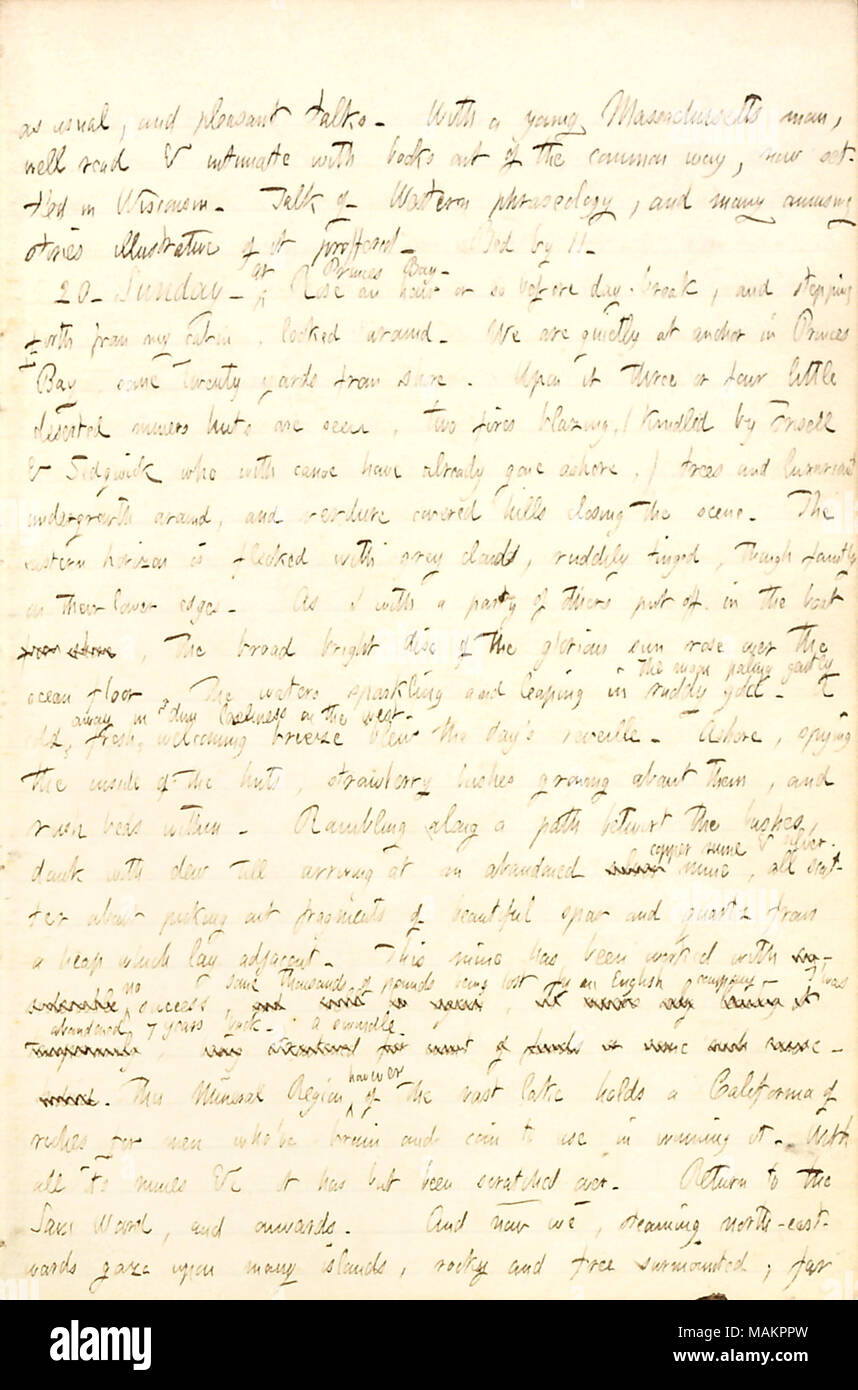 as usual, and pleasant talks. With a young Massachusetts man,
well read & intimate with books out of the common way, now set-
tled in Wisconsin. Talk of Western phraseology, and many amusing
stories illustrative of it proffered. Bed by 11.
at Princes Bay.
20. Sunday. Rose an hour or so before day-break, and stepping
forth from my cabin, looked around. We are quietly at anchor in Princes
Bay, some twenty yards from shore. Upon it three or four little
deserted miners huts are seen, two fires blazing, (kindled by Frisell
& Sedgwick who with canoe have already gone ashore,) trees and luxuriant
undergrowth around, and verdure covered hills closing the scene. The
eastern horizon is flecked with grey clouds, ruddily tinged, though faintly
on their lower edges. As I with a party of others put off in the boat
for shore, the broad bright disc of the glorious sun rose over the
the moon paling gently
ocean floor, the waters sparkling and leaping in ruddy gold. A
away in dim loneliness in the west.
cold, fresh, welcoming breeze blew the day's reveille. Ashore, spying
the inside of the huts, strawberry bushes growing about them, and
rush beds within. Rambling along a path betwixt the bushes,
copper mine & silver.
dank with dew till arriving at an abandoned silver mine, all scat-
ter about picking out fragments of beautiful spar and quartz from
a heap which lay adjacent. This mine has been worked with
no some thousands of pounds being lost by an English company. Twas
success,
abandoned 7 years back. a swindle.
however
This Mineral Region of the vast lake holds a California of
riches for men who've brain and coin to use in winning it. With
all its mines &c it has but been scratched over. Return to the
Sam Ward, and onwards. And now we, steaming north-east-
wards gaze upon many islands, rocky and tree surmounted, far
alamy
Image ID: MAKPPW
www.alamy.com